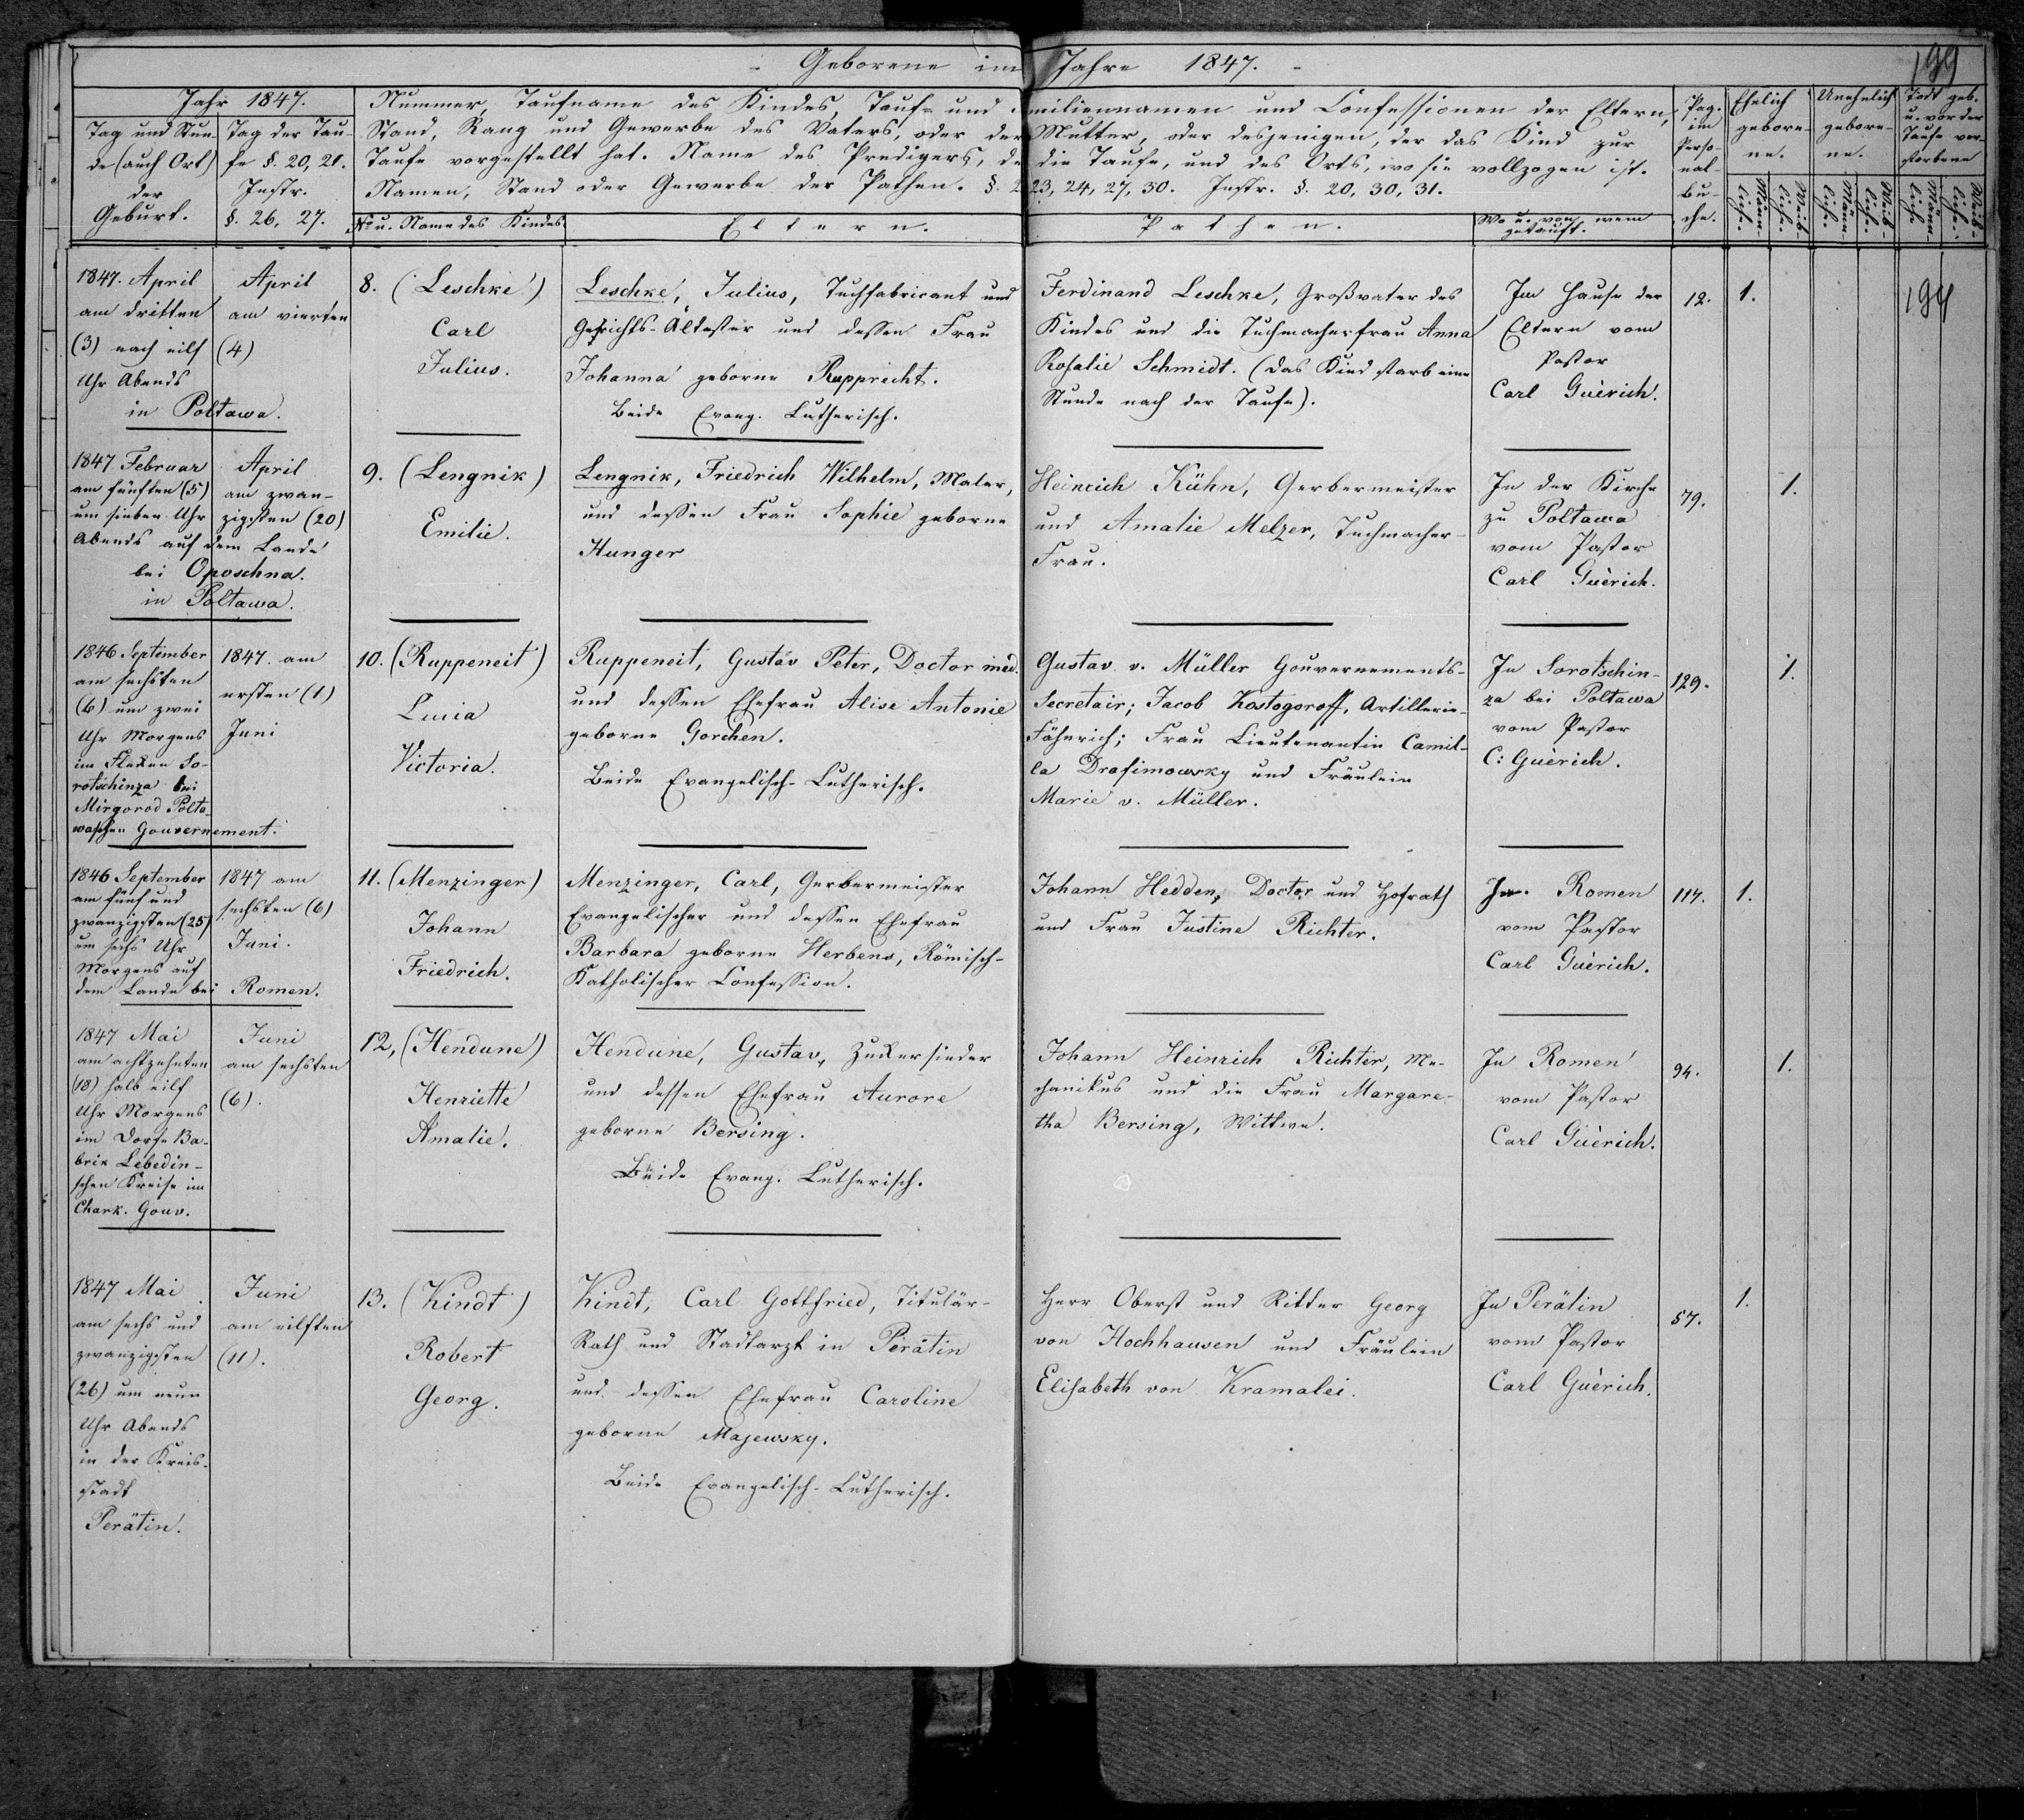 Geborene im Jahre 1847.
199
Jahr 1847.
Tag und Stun-
de (auch Ort)
der
Geburt.
Tag der Tau-
fe §. 20, 21.
Instr.
§. 26, 27.
Nummer, Taufname des Kindes, Tauf- und Familiennamen und Confessionen der Eltern,
Stand, Rang und Gewerbe des Vaters, oder der Mutter, oder desjenigen, der das Kind zur
Taufe vorgestellt hat. Name des Predigers, der die Taufe, und des Orts, wo sie vollzogen ist.
Namen, Stand oder Gewerbe der Pathen. §. 23, 24, 27, 30. Instr. §. 20, 30, 31.
No u. Name des Kindes.
Eltern.
Pathen.
Wo u. von wem
getauft.
Pag.
im
Perso-
nal-
Bu-
che.
Ehelich
gebore-
ne.
Unehelich
gebore-
ne.
Todt geb.
u. vor der
Taufe ver-
storbene
Männ-
lich.
Weib-
lich.
Männ-
lich.
Weib-
lich.
Männ-
lich.
Weib-
lich.
1847. April
am dritten
(3) nach eilf
Uhr Abends
in Poltawa.
April
am vierten
(4)
8. (Leschke)
Carl
Julius.
Leschke, Julius, Tuchfabricant und
Gerichts-Ältester und dessen Frau
Johanna geborne Rupprecht.
Beide Evang. Lutherisch.
Ferdinand Leschke, Großvater des
Kindes und die Tuchmacherfrau Anna
Rosalie Schmidt. (das Kind starb eine
Stunde nach der Taufe).
Im Hause der
Eltern vom
Pastor
Carl Guèrich.
12.
1.
194
1847 Februar
am fünften (5)
um sieben Uhr
Abends auf dem Lande
bei Oposchna.
in Poltawa.
April
am zwan-
zigsten (20)
9. (Lengnik)
Emilie.
Lengnik, Friedrich Wilhelm, Maler,
und dessen Frau Sophie geborne
Hunger
Heinrich Kühn, Gerbermeister
und Amalie Melzer, Tuchmacher-
Frau.
In der Kirche
zu Poltawa
vom Pastor
Carl Guèrich.
79.
1.
1846 September
am sechsten
(6) um zwei
Uhr Morgens
im Flecken So-
rotschinza bei
Mirgorod Polta-
waschen Gouvernement.
1847. am
ersten (1)
Juni
10. (Ruppeneit)
Lucia
Victoria.
Ruppeneit, Gustav Peter, Doctor med.
und dessen Ehefrau Alise Antonie
geborne Gorchen.
Beide Evangelisch-Lutherisch.
Gustav v. Müller Gouvernements-
Secretair; Jacob Kostogoroff, Artillerie-
Fähnrich; Frau Lieutenantin Camil-
la Drasimowsky und Fräulein
Marie v. Müller.
In Sorotschin-
za bei Poltawa
vom Pastor
C: Guèrich.
129.
1.
1846 September
am fünf und
zwanzigsten (25)
um sechs Uhr
Morgens auf
dem Lande bei Romen.
1847 am
sechsten (6)
Juni.
11. (Menzinger)
Johann
Friedrich.
Menzinger, Carl, Gerbermeister
Evangelischer und dessen Ehefrau
Barbara geborne Herbens, Römisch-
Katholischer Confession.
Johann Hedden, Doctor und Hofrath
und Frau Justine Richter.
In Romen
vom Pastor
Carl Guèrich.
114.
1.
1847 Mai
am achtzehnten
(18) halb eilf
Uhr Morgens
im Dorfe Ba-
brik Lebedin-
schen Kreise im
Chark. Gouv.
Juni
am sechsten
(6).
12, (Hendune)
Henriette
Amalie.
Hendune, Gustav, Zuckersieder
und dessen Ehefrau Aurore
geborne Bersing.
Beide Evang. Lutherisch.
Johann Heinrich Richter, Me-
chanikus und die Frau Margare-
tha Bersing, Wittwe.
In Romen
vom Pastor
Carl Guèrich.
94.
1.
1847 Mai
am sechs und
zwanzigsten
(26) um neun
Uhr Abends
in der Kreis-
stadt
Perätin.
Juni
am eilften
(11).
13. (Kindt)
Robert
Georg.
Kindt, Carl Gottfried, Titulär-
Rath und Stadtarzt in Perätin
und dessen Ehefrau Caroline
geborne Majewsky.
Beide Evangelisch-Lutherisch.
Herr Oberst und Ritter Georg
von Hochhausen und Fräulein
Elisabeth von Kramalei.
In Perätin
vom Pastor
Carl Guèrich.
57.
1.